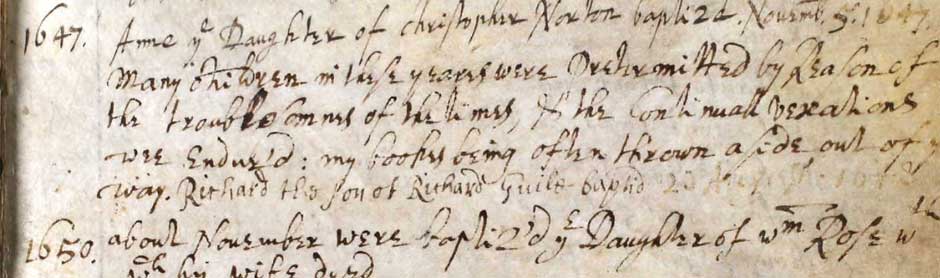 1647. Anne ye Daughter of Christopher Norton bapti2d. Novemb. 5. 1647
Many Children in these yeares were Pretermitted by Reason of
the troublesomnes of the times, & the Continuall vexations
wee Endur'd: my bookes being often thrown aside out of ye
way. Richard the son of Richard Guile baptd 23
1650. about November were bapti2'd ye Daughter of Wm Rose wth
wch his wife dyed